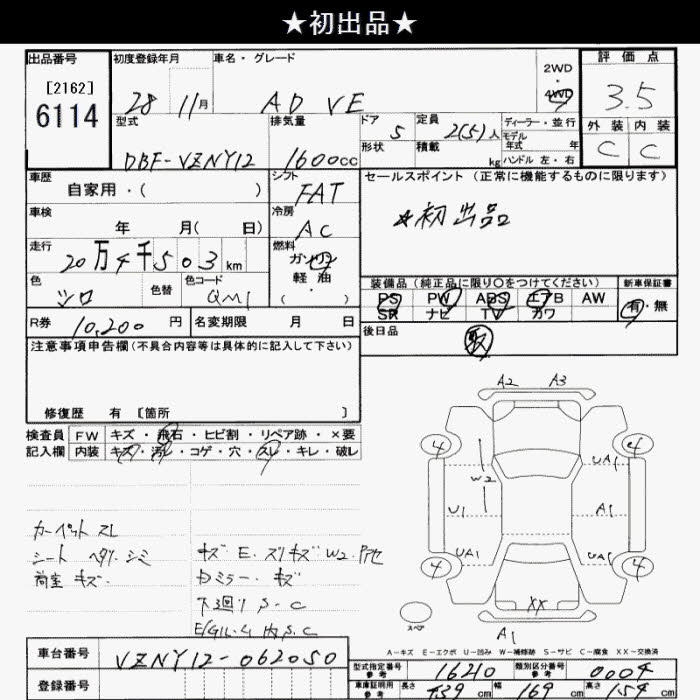 ★初出品★
出品番号
[2162]
6114
初度登録年月
28 11月
車名・グレード
AD VE
2WD
・
4WD
評価点
3.5
外装 内装
C C
型式
DBF-VZNY12
排気量
1600cc
ドア 5
形状
定員 2(5)人
積載 kg
ディーラー・並行
モデル
年式 年
ハンドル 左・右
車歴
自家用・( )
シフト
FAT
セールスポイント(正常に機能するものに限ります)
★初出品
車検
年 月( 日)
冷房
AC
走行
20万4千503km
燃料
ガソリン
軽油
( ・ )
色
シロ
色替
色コード
QM1
装備品(純正品に限り○をつけてください)
PS PW ABS エアB AW
SR ナビ TV カワ
新車保証書
有・無
R券 10,200円
名変期限 月 日
後日品
取
注意事項申告欄(不具合内容等は具体的に記入して下さい)
修復歴 有 [箇所 ]
検査員
記入欄
FW キズ・飛石・ヒビ割・リペア跡・×要
内装 キズ・汚れ・コゲ・穴・スレ・キレ・破レ
カーペット スレ
シート ヘタリ・シミ
荷室 キズ・
キズ E・スリキズ W2・
ミラー・キズ
下回り S・C
内 S.C
A2 A3
4 4
W2 UA1
U1 A1
UA1 UA1
4 4
XX
スペア
A1
A-キズ E-エクボ U-凹み W-補修跡 S-サビ C-腐食 XX-交換済
車台番号
VZNY12-062050
登録番号
型式指定番号
参考
16210
類別区分番号
参考
0004
車庫証明用
参考
長さ 439cm 幅 169cm 高さ 154cm